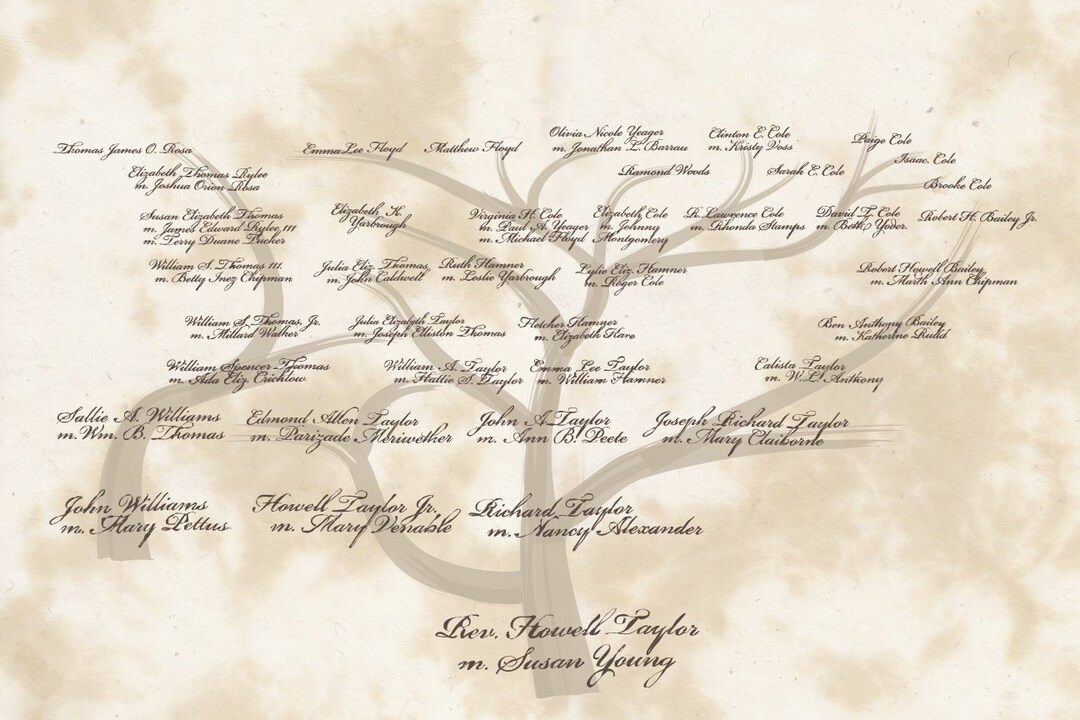 Olivia Nicole Yeager
m. Jonathan L. Barrau
Clinton E. Cole
m. Kristy Voss
Paige Cole
Thomas James O. Rosa
Emma Lee Floyd
Matthew Floyd
Isaac. Cole
Elizabeth Thomas Rylee
m. Joshua Orion Rosa
Ramond Woods
Sarah E. Cole
Brooke Cole
Susan Elizabeth Thomas
m. James Edward Rylee 111
m. Terry Duane Tucker
Elizabeth K.
Yarbrough
Virginia H. Cole
m. Paul A. Yeager
m. Michael Floyd
Elizabeth Cole
m. Johnny
Montgomery
R. Lawrence Cole
m. Rhonda Stamps
David T. Cole
m. Beth Yoder.
Robert H. Bailey Jr.
William S. Thomas 111.
m. Betty Inez Chipman
Julia Eliz. Thomas
m. John Caldwell
Ruth Hamner
m. Leslie Yarbrough
Lylie Eliz. Hamner
m. Roger Cole
Robert Howell Bailey
m. Marth Ann Chipman
William S. Thomas, Jr.
m. Millard Walker
Julia Elizabeth Taylor
m. Joseph Elliston Thomas
Fletcher Hamner
m. Elizabeth Hare
Ben Anthony Bailey
m. Katherine Rudd
William Spencer Thomas
m. Ada Eliz. Crichlow
William A. Taylor
m. Hattie S. Taylor
Emma Lee Taylor
m. William Hamner
Calista Taylor
m. W.L. Anthony
Sallie A. Williams
m. Wm. B. Thomas
Edmond Allen Taylor
m. Parizade Meriwether
John A Taylor
m. Ann B. Peete
Joseph Richard Taylor
m. Mary Claiborne
John Williams
m. Mary Pettus
Howell Taylor Jr.
m. Mary Venable
Richard Taylor
m. Nancy Alexander
Rev. Howell Taylor
m. Susan Young